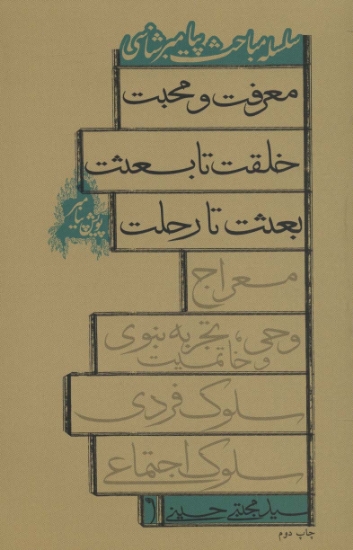 سلسله مباحث پیامبرشناسی
معرفت و محبت
خلقت تا بعثت
بعثت تا رحلت
پویش پیامبر
معراج
وحی، تجربه نبوی
و خاتمیت
سلوک فردی
سلوک اجتماعی
سید مجتبی حسینی
چاپ دوم